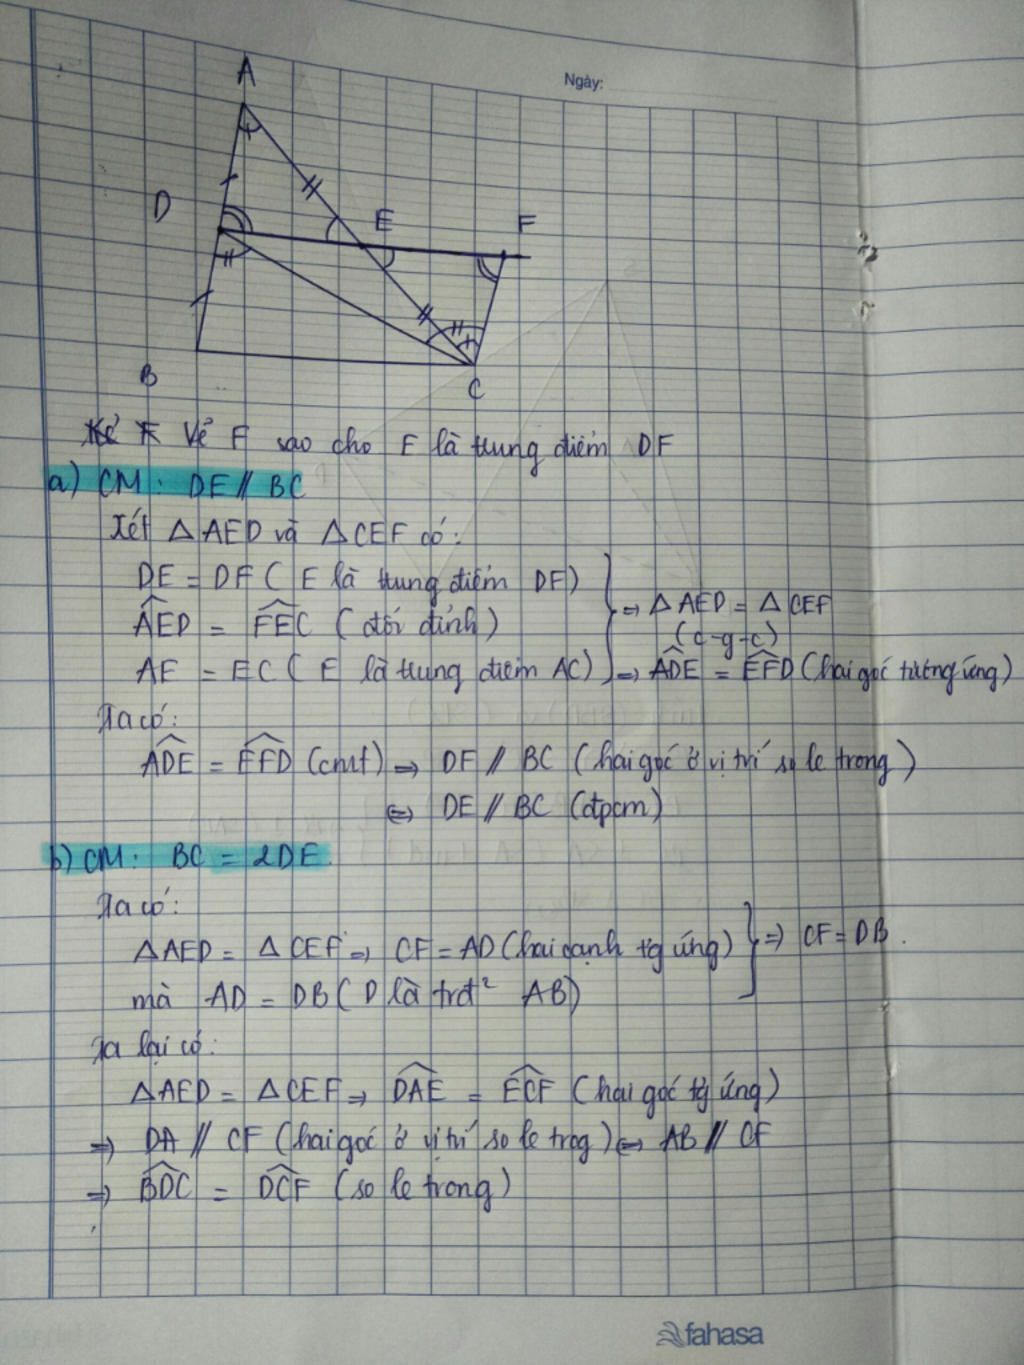 Ngày:
A
D
E
F
B
C
Vẽ F sao cho E là trung điểm DF
a) CM: DE // BC
Xét △AED và △CEF có:
DE = DF (E là trung điểm DF)
AED = FEC (đối đỉnh)
AE = EC (E là trung điểm AC)
⇒ △AED = △CEF
(c-g-c)
⇒ ADE = EFD (hai góc tương ứng)
Ta có:
ADE = EFD (cmt) ⇒ DF // BC (hai góc ở vị trí so le trong)
⇔ DE // BC (đpcm)
b) CM: BC = 2DE.
Ta có:
△AED = △CEF ⇒ CF = AD (hai cạnh tg ứng)
mà AD = DB (D là trđ² AB)
⇒ CF = DB.
Ta lại có:
△AED = △CEF ⇒ DAE = ECF (hai góc tg ứng)
⇒ DA // CF (hai góc ở vị trí so le trog) ⇔ AB // CF
⇒ BDC = DCF (so le trong)
fahasa